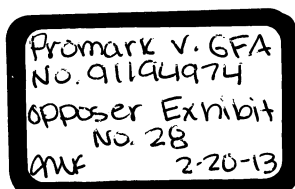 Promark v. GFA
No. 91194974
Opposer Exhibit
No. 28
2-20-13